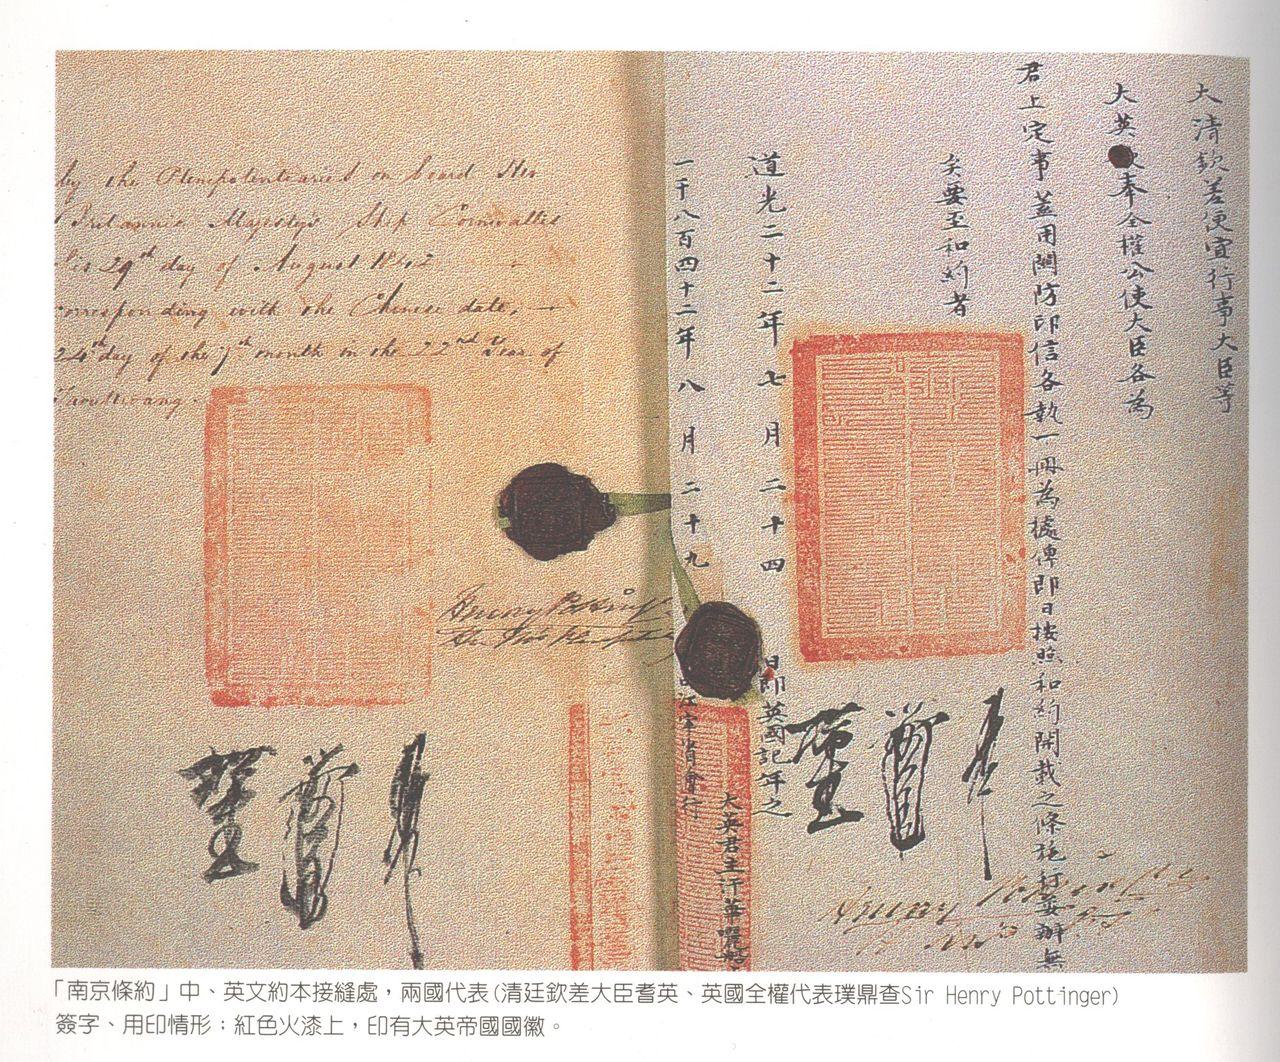 by the Plenipotentiaries on board Her
Britannic Majesty's Ship Cornwallis
this 29th day of August 1842
corresponding with the Chinese date,
24th day of the 7th month in the 22nd Year of
Taoukwang.
Henry Pottinger
大清欽差便宜行事大臣等
大英欽奉全權公使大臣各為
君上定事蓋用關防印信各執一冊為據俾即日按照和約開載之條施行妥辦無
矣要至和約者
道光二十二年七月二十四日即英國記年之
一千八百四十二年八月二十九
江寧省會行
大英君主汗華囇船
Henry Pottinger
「南京條約」中、英文約本接縫處，兩國代表(清廷欽差大臣耆英、英國全權代表璞鼎查Sir Henry Pottinger)
簽字、用印情形；紅色火漆上，印有大英帝國國徽。